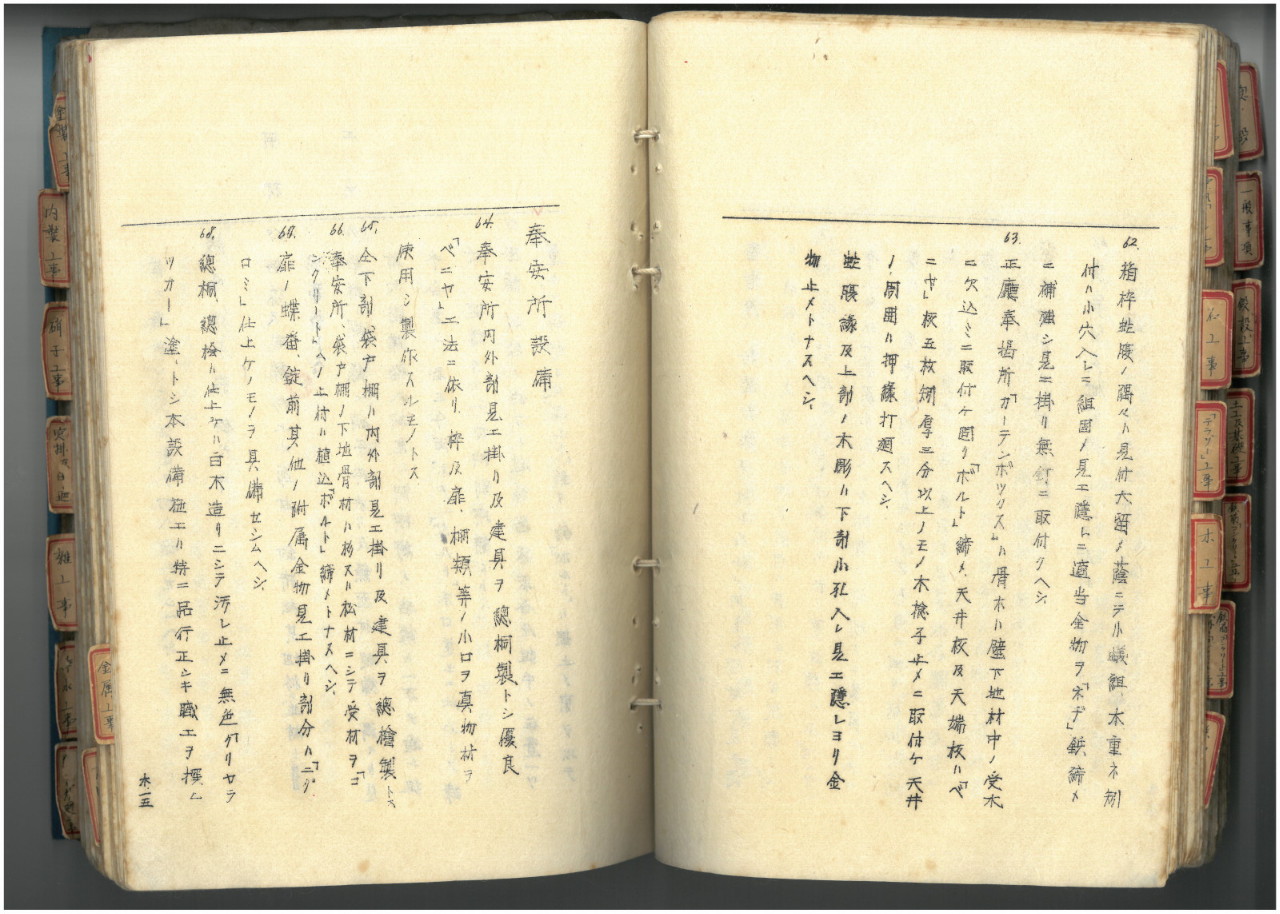 62. 箱枠蛇腹ノ隅々ハ見付大留メ蔭ニテ小蟻組、木重ネ矧
付ハ小穴入レニ組固メ見エ隠レニ適当金物ヲ「ネヂ」鉄締メ
ニ補強シ見エ掛リ無釘ニ取付クヘシ
63. 正廳奉掲所「カーテンボックス」ハ骨木ハ壁下地材中ノ受木
ニ欠込ミニ取付ケ固リ「ボルト」締メ、天井板及天端板ハ「ベ
ニヤ」板五枚矧厚三分以上ノモノ木捻子止メニ取付ケ天井
ノ周囲ハ押縁打廻スヘシ
蛇腹縁及上部ノ木彫ハ下部小孔入レ見エ隠レヨリ金
物止メトナスヘシ
奉安所設備
64. 奉安所内外部見エ掛リ及建具ヲ總桐製トシ優良
「ベニヤ」工法ニ依リ、枠及扉、棚類等ノ小口ヲ真物材ヲ
使用シ製作スルモノトス
65. 仝下部袋戸棚ハ内外部見エ掛リ及建具ヲ總檜製トス
66. 奉安所、袋戸棚ノ下地骨材ハ杉又ハ松材ニシテ受材ヲ「コ
ンクリート」ヘノ上付ハ植込「ボルト」締メトナスヘシ
67. 扉ノ蝶番、錠前其他ノ附属金物見エ掛リ部分ハ「ニク
ロミ」仕上ケノモノヲ具備セシムヘシ
68. 總桐、總檜ハ仕上ケハ白木造リニシテ汚レ止メニ無色「クリヤラ
ツカー」塗、トシ本設備施工ハ特ニ品行正シキ職工ヲ撰ヒ
木.一五
金属工事
内装工事
硝子工事
雑工事
一般事項
仮設工事
石工事
「テラゾー」工事
木工事